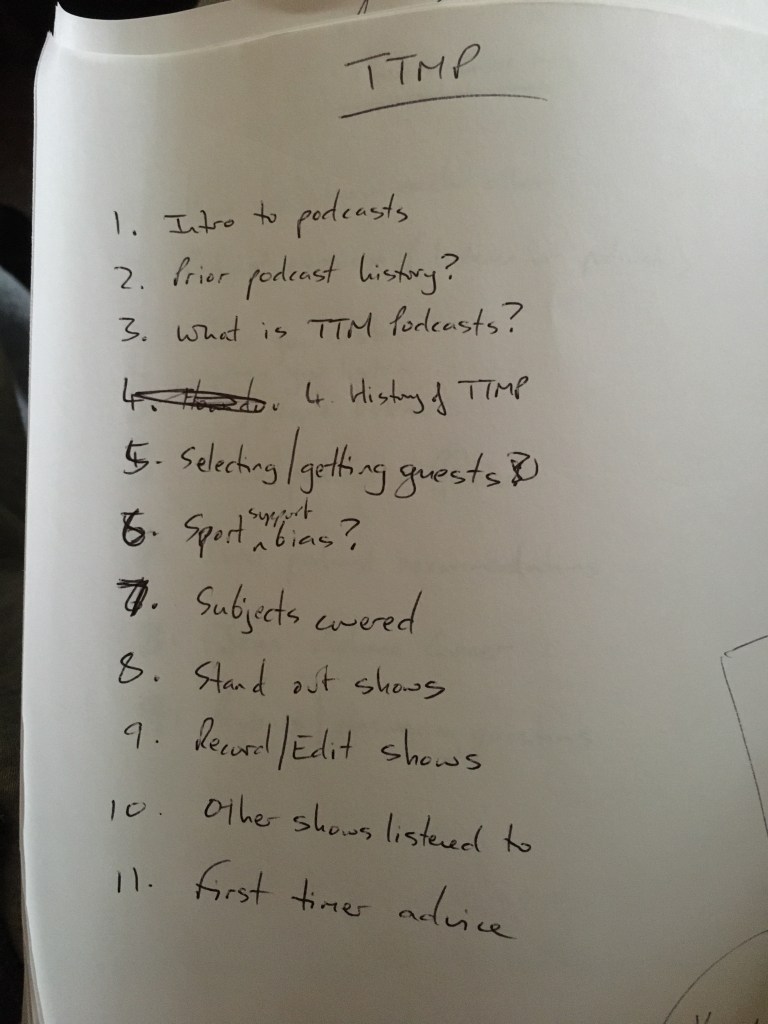 TTMP
1. Intro to podcasts
2. Prior podcast history?
3. What is TTM Podcasts?
4. 4. History of TTMP
5. Selecting/getting guests?
6. Sport support bias?
7. Subjects covered
8. Stand out shows
9. Record/Edit shows
10. Other shows listened to
11. First timer advice